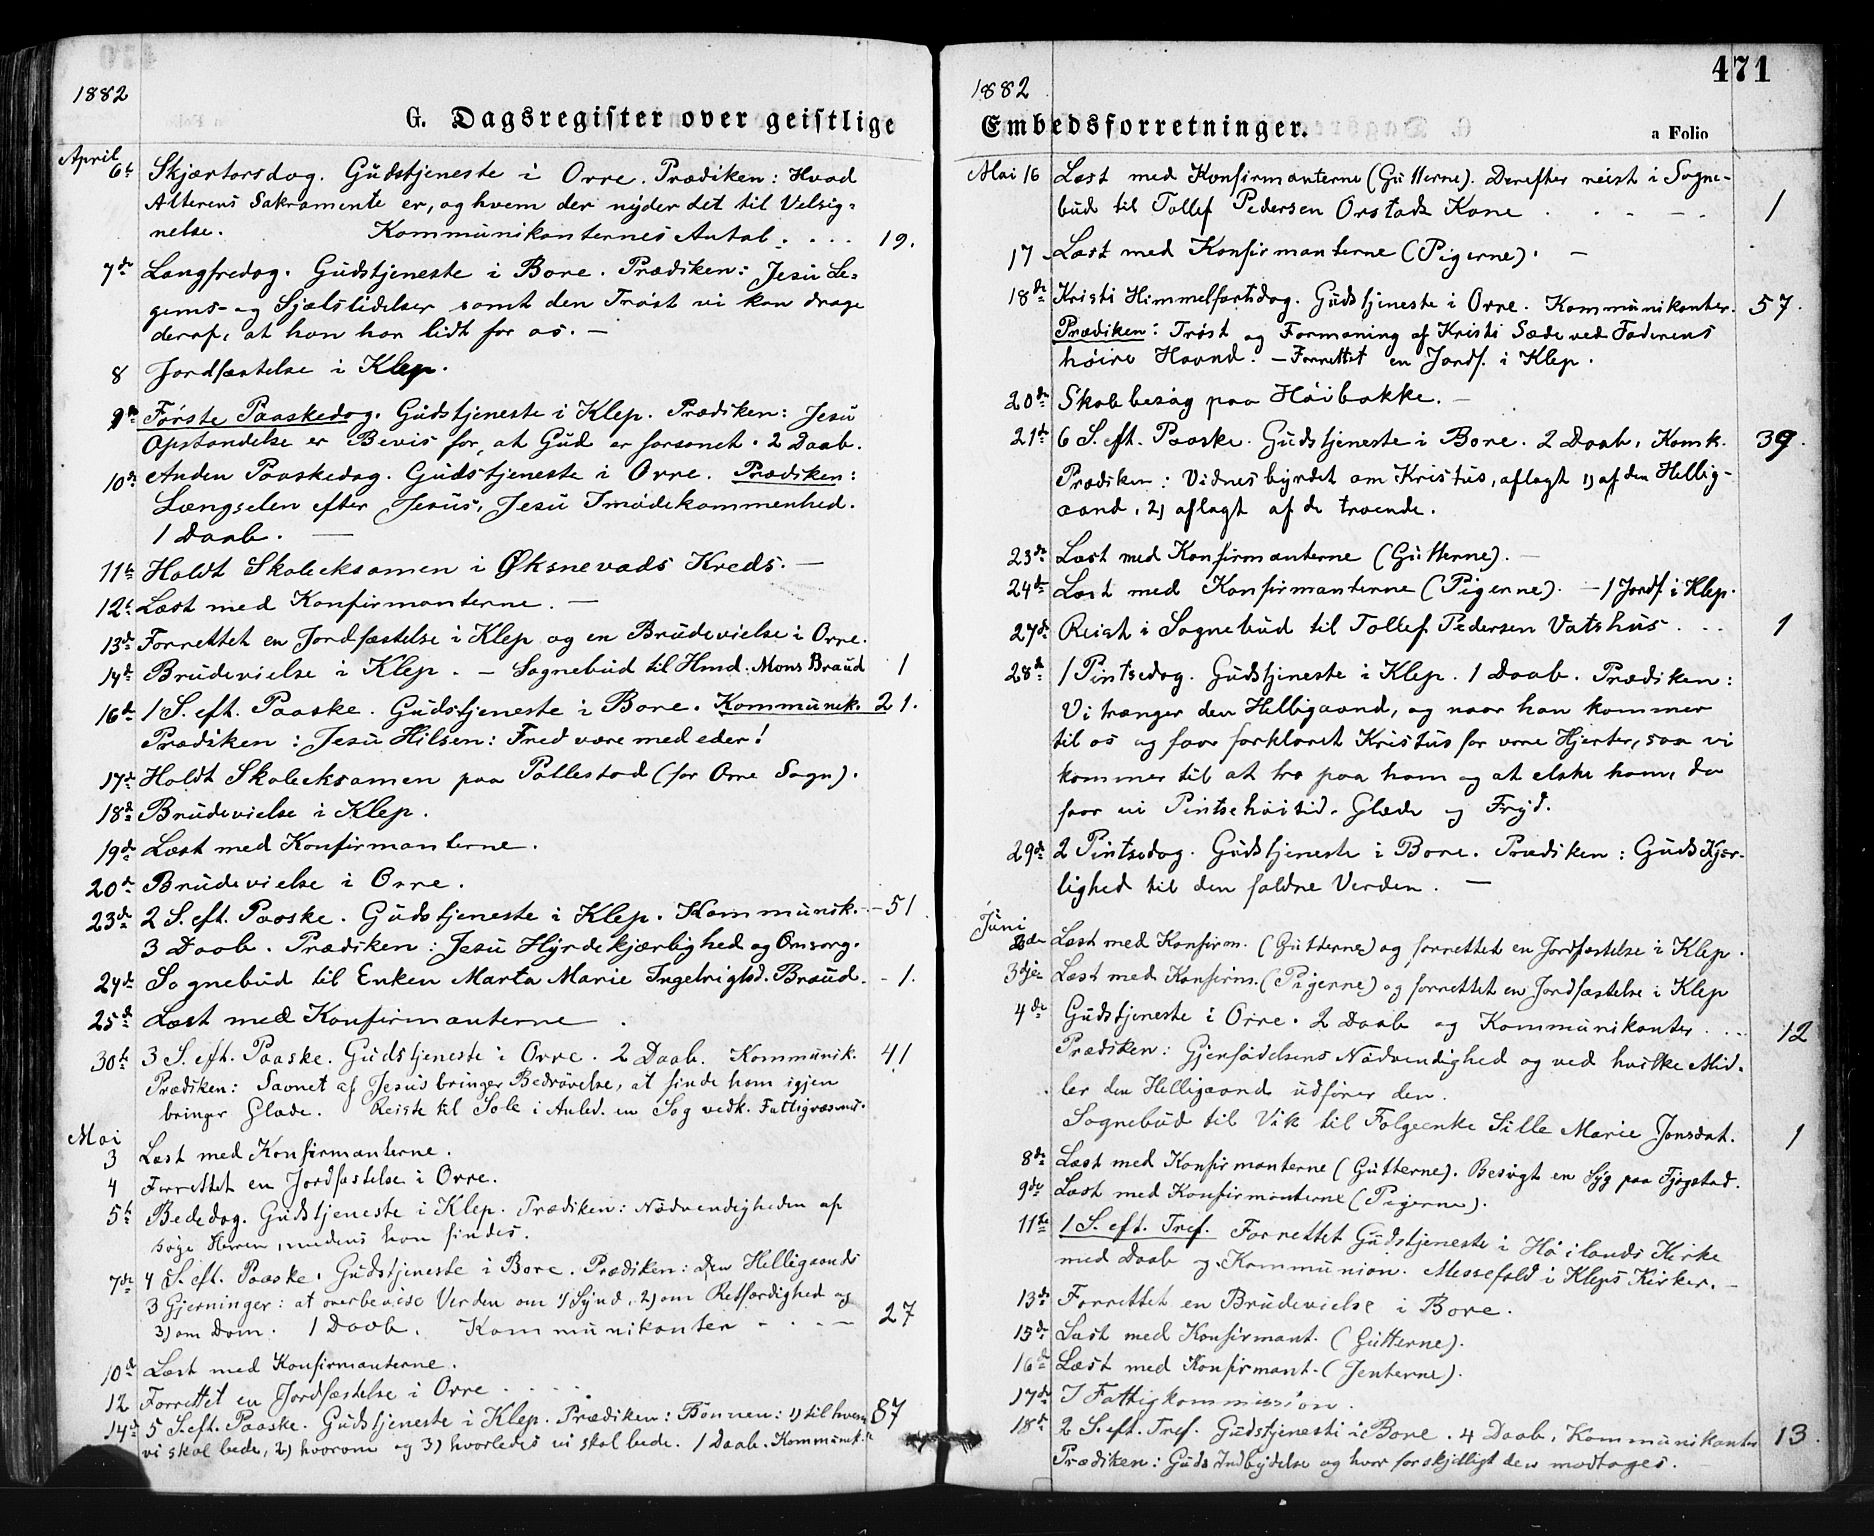 1882
G. Dagsregister over geistlige
April
6te Skjærtorsdag. Gudstjeneste i Orre. Prædiken: Hvad
Alterens Sakramente er, og hvem der nyder det til Velsig-
nelse. Kommunikanternes Antal . . . . 19.
7de Langfredag. Gudstjeneste i Bore. Prædiken: Jesu Le-
gems- og Sjælslidelser samt den Trøst vi kan drage
deraf, at han har lidt for os. —
8 Jordfæstelse i Klep.
9de Første Paaskedag. Gudstjeneste i Klep. Prædiken: Jesu
Opstandelse er Bevis for, at Gud er forsonet. 2 Daab.
10de Anden Paaskedag. Gudstjeneste i Orre. Prædiken:
Længselen efter Jesus, Jesu Imødekommenhed.
1 Daab. —
11te Holdt Skoleeksamen i Øksnevads Kreds. —
12te Læst med Konfirmanterne. —
13de Forrettet en Jordfæstelse i Klep og en Brudevielse i Orre.
14de Brudevielse i Klep. — Sognebud til Hmd. Mons Braud 1
16de 1 S. eft. Paaske. Gudstjeneste i Bore. Kommunik. 21.
Prædiken: Jesu Hilsen: Fred være med eder!
17de Holdt Skoleeksamen paa Pollestad (for Orre Sogn).
18de Brudevielse i Klep.
19de Læst med Konfirmanterne.
20de Brudevielse i Orre.
23de 2 S. eft. Paaske. Gudstjeneste i Klep. Kommunik. - 51
3 Daab. Prædiken: Jesu Hyrdekjærlighed og Omsorg.
24de Sognebud til Enken Marta Marie Ingebrigtsd. Braud. - 1.
25de Læst med Konfirmanterne.
30te 3 S. eft. Paaske. Gudstjeneste i Orre. 2 Daab. Kommunik. 41
Prædiken: Savnet af Jesus bringer Bedrøvelse, at finde ham igjen
bringer Glæde. Reiste til Sole i Anled. en Sag vedk. Fattigvæsenet.
Mai
3 Læst med Konfirmanterne.
4 Forrettet en Jordfæstelse i Orre.
5te Bededag. Gudstjeneste i Klep. Prædiken: Nødvendigheden af
søge Herren, medens han findes.
7de 4 S. eft. Paaske. Gudstjeneste i Bore. Prædiken: Den Helligaands
3 Gjerninger: at overbevise Verden om 1) Synd, 2) om Retfærdighed og
3) om Dom. 1 Daab. Kommunikanter - . . — 27
10de Læst med Konfirmanterne.
12 Forrettet en Jordfæstelse i Orre . . .
14de 5 S. eft. Paaske. Gudstjeneste i Klep. Prædiken: Bønnen: 1) til hvem 87
vi skal bede, 2) hvorom og 3) hvorledes vi skal bede. 1 Daab. Kommunik.
471
1882
Embedsforretninger.
a Folio
Mai 16 Læst med Konfirmanterne (Gutterne). Derefter reist i Sogne-
bud til Tollef Pedersen Orstads Kone . . . . 1
17 Læst med Konfirmanterne (Pigerne). —
18de Kristi Himmelfartsdag. Gudstjeneste i Orre. Kommunikanter. 57.
Prædiken: Trøst og Formaning af Kristi Sæde ved Faderens
høire Haand. — Forrettet en Jordf. i Klep.
20de Skolebesøg paa Høibakke. —
21de 6 S. eft. Paaske. Gudstjeneste i Bore. 2 Daab, Komk. 39.
Prædiken: Vidnesbyrdet om Kristus, aflagt 1) af den Hellig-
aand, 2) aflagt af de troende.
23de Læst med Konfirmanterne (Gutterne). —
24de Læst med Konfirmanterne (Pigerne). — 1 Jordf. i Klep.
27de Reist i Sognebud til Tollef Pedersen Vatshus . . . 1
28de 1 Pintsedag. Gudstjeneste i Klep. 1 Daab. Prædiken:
Vi trænger den Helligaand, og naar han kommer
til os og faar forklaret Kristus for vore Hjerter, saa vi
kommer til at tro paa ham og at elske ham, da
faar vi Pintsehøitid. Glæde og Fryd.
29de 2 Pintsedag. Gudstjeneste i Bore. Prædiken: Guds Kjær-
lighed til den faldne Verden. —
Juni
2den Læst med Konfirm. (Gutterne) og forrettet en Jordfæstelse i Klep.
3dje Læst med Konfirm. (Pigerne) og forrettet en Jordfæstelse i Klep
4de Gudstjeneste i Orre. 2 Daab og Kommunikanter . . . 12
Prædiken: Gjenfødelsens Nødvendighed og ved hvilke Mid-
ler den Helligaand udfører den.
Sognebud til Vik til Folgeenke Sille Marie Jonsdat. 1
8de Læst med Konfirmanterne (Gutterne). Besøgt en Syg paa Fjøgstad.
9de Læst med Konfirmanterne (Pigerne).
11te 1 S. eft. Tref. Forrettet Gudstjeneste i Høilands Kirke
med Daab og Kommunion. Messefald i Kleps Kirker. —
13de Forrettet en Brudevielse i Bore.
15de Læst med Konfirmant. (Gutterne).
16de Læst med Konfirmant. (Jenterne).
17de I Fattigkommission.
18de 2 S. eft. Tref. Gudstjeneste i Bore. 4 Daab, Kommunikanter 13.
Prædiken: Guds Indbydelse og hvor forskjelligt den modtages.